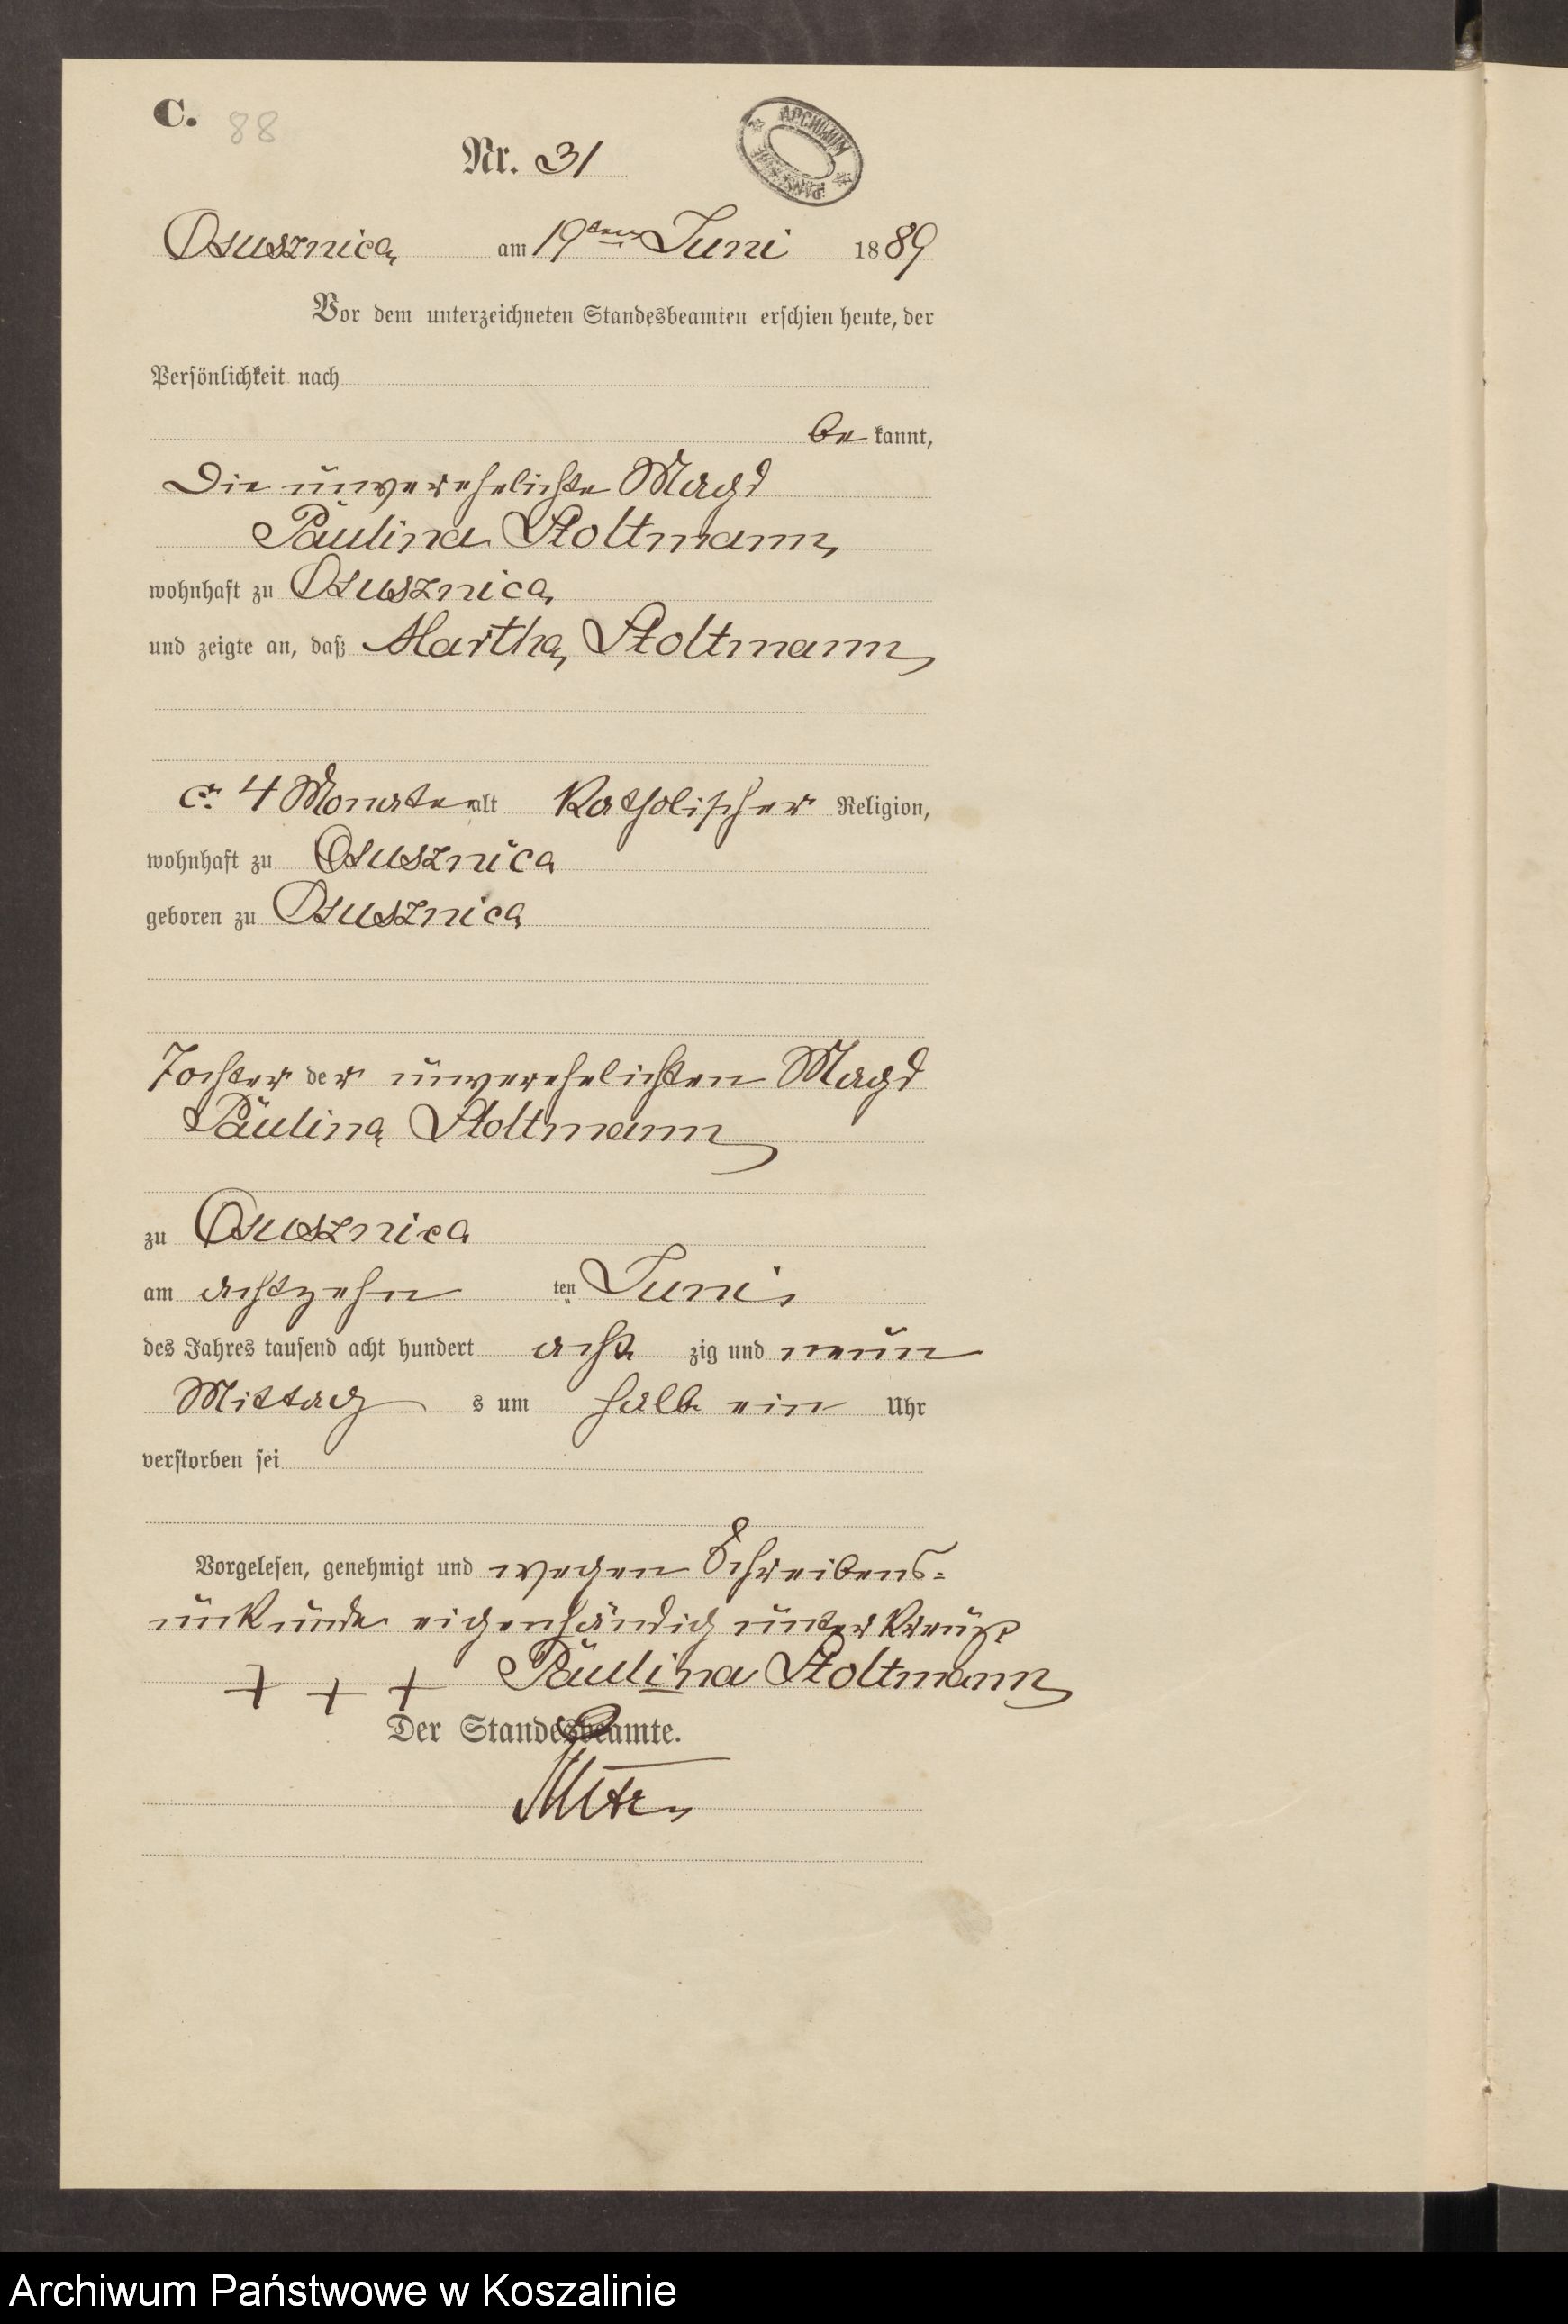 C. 88
Nr. 31
ARCHIWUM
Osusznica am 19ten Juni 1889
Vor dem unterzeichneten Standesbeamten erschien heute, der
Persönlichkeit nach
be kannt,
Die unverehelichte Magd
Paulina Stoltmann,
wohnhaft zu Osusznica,
und zeigte an, daß Martha Stoltmann
cr. 4 Monate alt Katholischer Religion,
wohnhaft zu Osusznica
geboren zu Osusznica
Tochter der unverehelichten Magd
Paulina Stoltmann
zu Osusznica
am achtzehn ten Juni,
des Jahres tausend acht hundert acht zig und neun
Mittag s um halb ein Uhr
verstorben sei
Vorgelesen, genehmigt und wegen Schreibens-
unkunde eigenhändig unterkreuzt
+ + + Paulina Stoltmann
Der Standesbeamte.
Archiwum Państwowe w Koszalinie